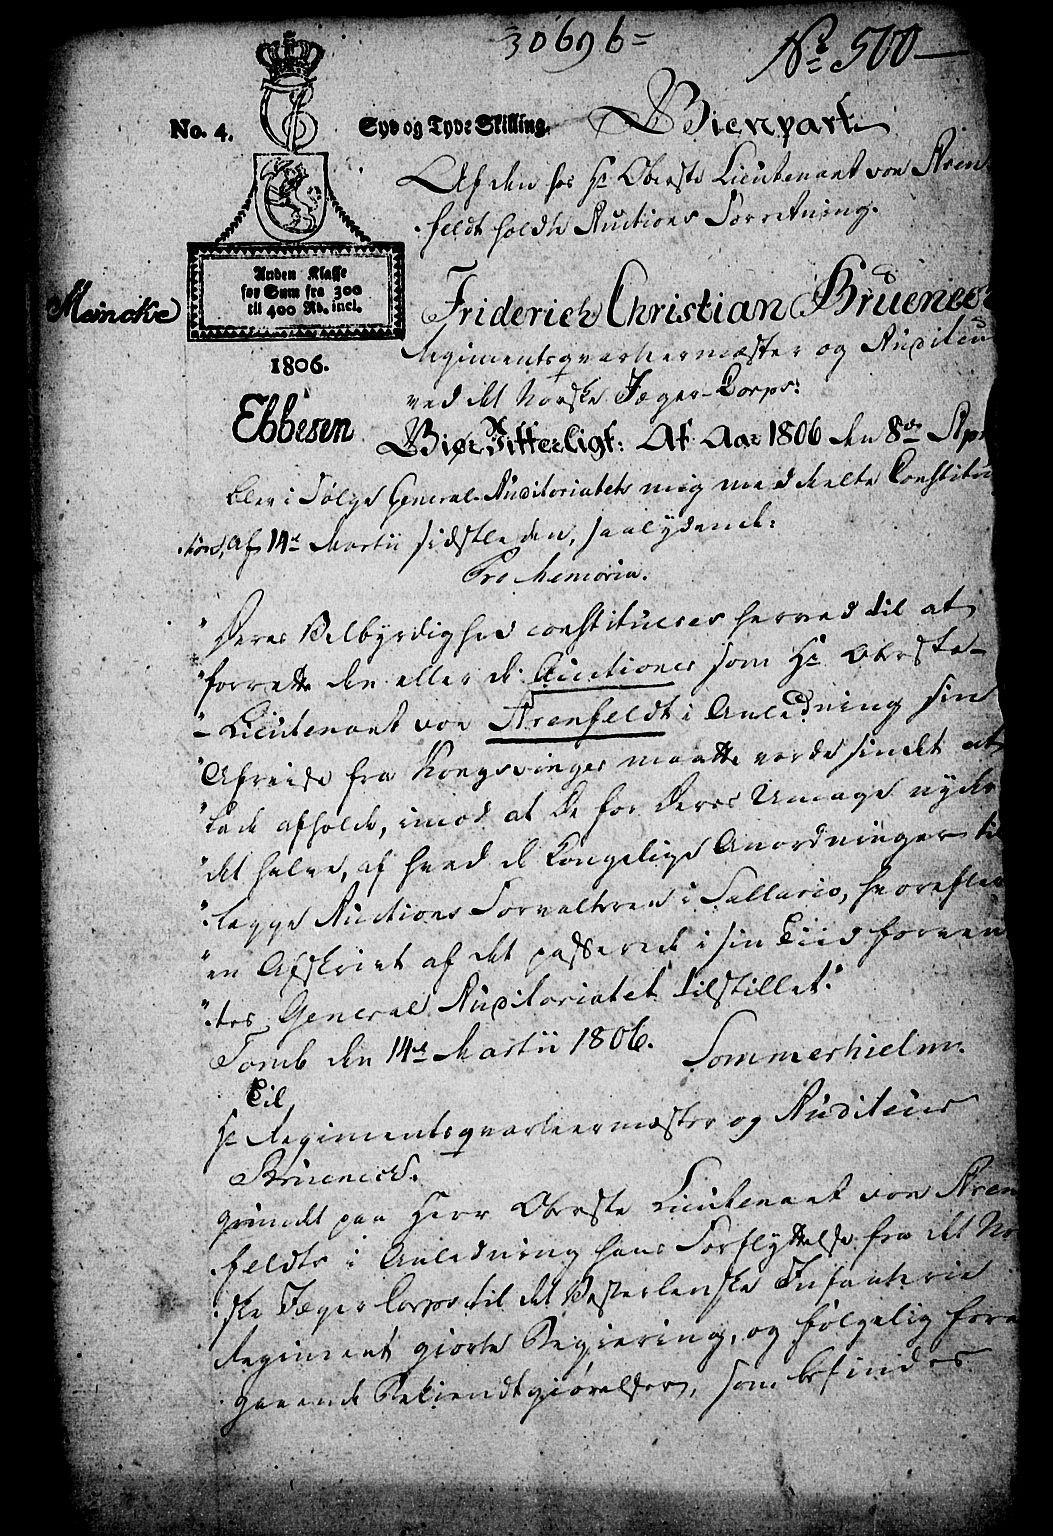 30696=
No 500 —
No. 4.
Syv og Tyve Skilling.
Gienpart
Af den hos Hr Oberste Lieutenant von Aren
feldt holdte Auctions Forretning.
Anden Klasse
for Sum fra 300
til 400 Rd. incl.
Meincke
1806.
Ebbesen
Friderich Christian Bruenech
Regimentsqvarteermester og Auditeur
ved det Norske Jæger-Corps:
Giør Vitterligt: At Aar 1806 den 8de Apr
blev i Følge General-Auditoriatets mig meddeelte Constitu
tion, af 14de Martii sidstleden, saalydende:
Pro Memoria.
"Deres Velbyrdighed constitueres herved til at
"forrette den eller de Auctioner som Hr Oberste-
"Lieutenant von Arenfeldt i Anledning sin
"Afreise fra Kongsvinger maatte vorde sindet at
"lade afholde, imod at De for Deres Umage nyder
"det halve, af hvad de Kongelige Anordninger til
"legge Auctions Forvalteren i Sallario, hvorefter
"en Afskrivt af det passerede i sin Tiid forven
"tes General Auditoriatet tilstillet."
Tomb den 14de Martii 1806. Sommerhielm.
Til
Hr Regimentsqvarteermester og Auditeur
Bruenech.
grundet paa Herr Oberste Lieutenant von Aren
feldts i Anledning hans Forflyttelse fra det No
ske Jæger Corps til det Vesterlenske Infanterie
Regiment giorte Reqvirering, og følgelig fore
gaaende Bekiendtgiørelser, som befindes